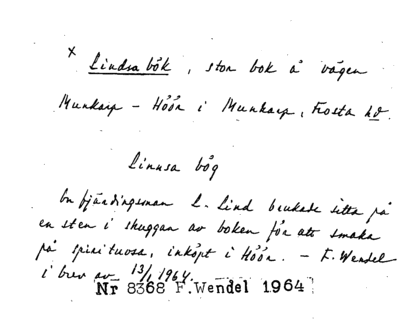 x
Lindsa bók, stor bok å vägen
Munkarp – Höör i Munkarp, Frosta hd.
Linnsa bög
En fjärdingsman L. Lind brukade sitta på
en sten i skuggan av boken för att smaka
på spirituosa, inköpt i Höör. – F. Wendel
i brev av 13/1 1964.
Nr 8368 F.Wendel 1964